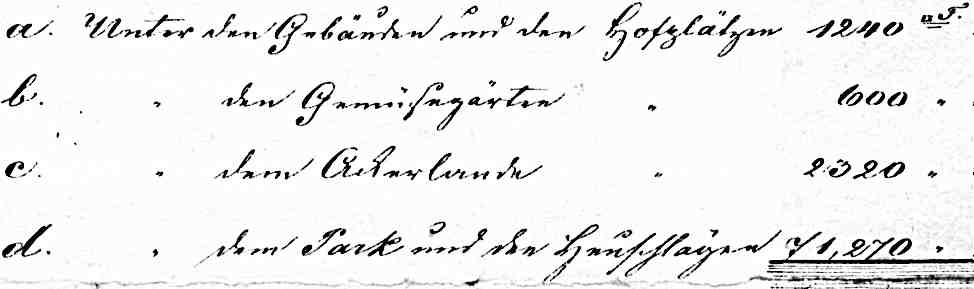 a. Unter den Gebäuden und den Hofplätzen 1240 □F.
b. " den Gemüsegärten " 600 "
c. " dem Ackerlande " 2320 "
d. " dem Park und den Heuschlägen 71,270 "